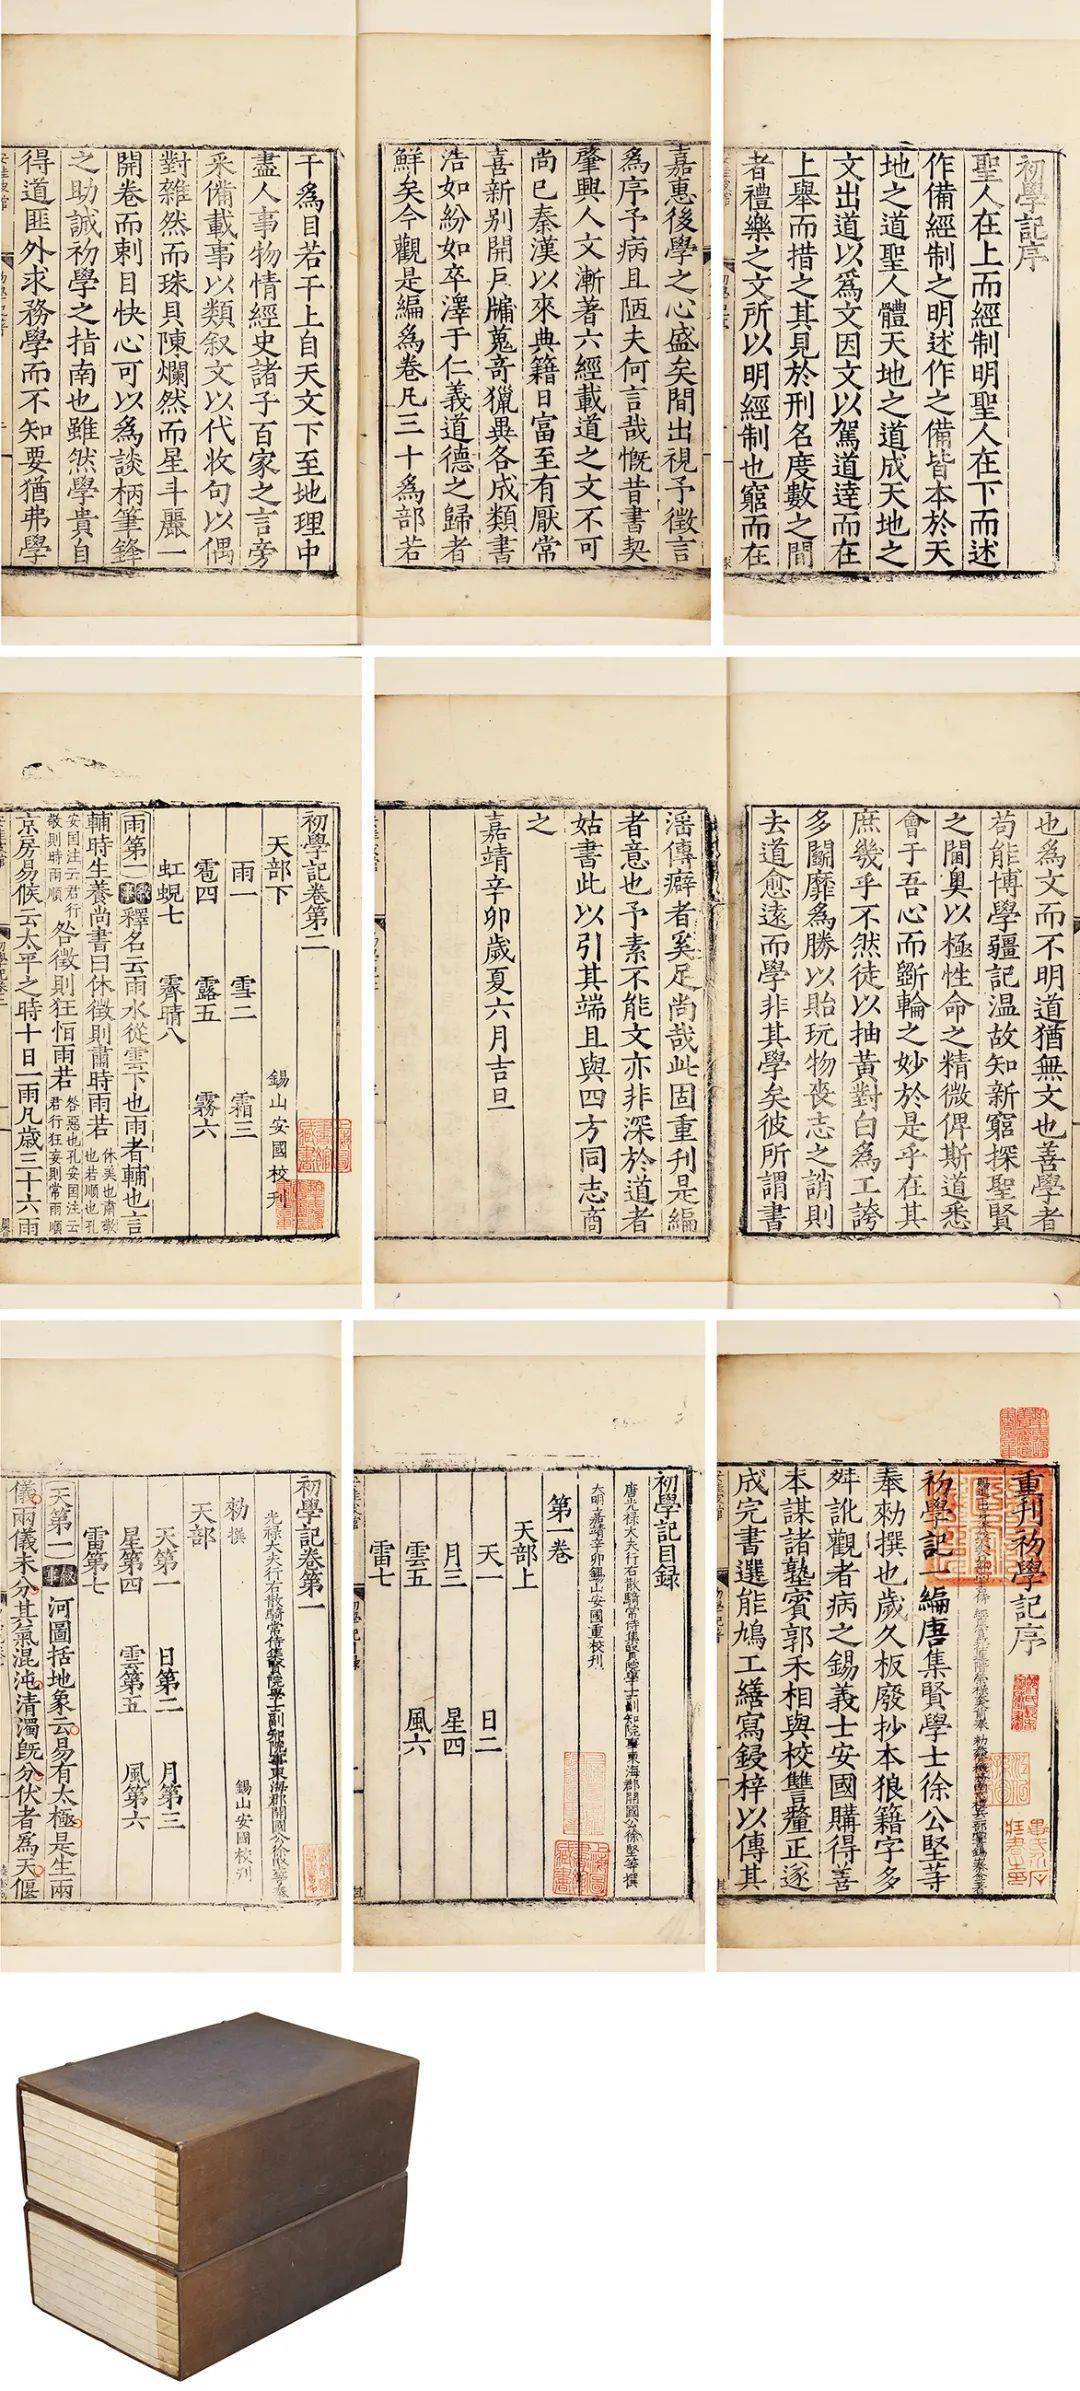 初學記序
聖人在上而經制明聖人在下而述
作備經制之明述作之備皆本於天
地之道聖人體天地之道成天地之
文出道以爲文因文以駕道達而在
上舉而措之其見於刑名度數之間
者禮樂之文所以明經制也窮而在
嘉惠後學之心盛矣間出視予徵言
爲序予病且陋夫何言哉慨昔書契
肇興人文漸著六經載道之文不可
尚已秦漢以來典籍日富至有厭常
喜新别開戶牖蒐奇獵異各成類書
浩如紛如卒澤于仁義道德之歸者
鮮矣今觀是編爲卷凡三十爲部若
干爲目若干上自天文下至地理中
盡人事物情經史諸子百家之言旁
采備載事以類叙文以代收句以偶
對雜然而珠貝陳爛然而星斗麗一
開卷而刺目快心可以爲談柄筆鋒
之助誠初學之指南也雖然學貴自
得道匪外求務學而不知要猶弗學
也爲文而不明道猶無文也善學者
苟能博學疆記温故知新窮探聖賢
之閫奥以極性命之精微俾斯道悉
會于吾心而斵輪之妙於是乎在其
庶幾乎不然徒以抽黃對白爲工誇
多鬭靡爲勝以貽玩物喪志之誚則
去道愈遠而學非其學矣彼所謂書
滛傳癖者奚足尚哉此固重刊是編
者意也予素不能文亦非深於道者
姑書此以引其端且與四方同志商
之
嘉靖辛卯歲夏六月吉旦
初學記卷第二
錫山安國校刋
天部下
雨一 雪二 霜三
雹四 露五 霧六
虹蜺七 霽晴八
雨第一 叙事 釋名云雨水從雲下也雨者輔也言
輔時生養尚書曰休徵則肅時雨若 休美也肅敬也若順也孔
安国注云君行敬則時雨順 咎徵則狂恒雨若 咎惡也孔安国注云君行狂妄則常雨順
京房易候云太平之時十日一雨凡歲三十六雨
重刊初學記序
初學記一編唐集賢學士徐公堅等
奉勑撰也歲久板廢抄本狼籍字多
舛訛觀者病之錫義士安國購得善
本謀諸塾賓郭禾相與校讐釐正遂
成完書選能鳩工繕寫鋟梓以傳其
初學記目録
唐光禄大夫行右散騎常侍集賢院學士副知院事東海郡開國公徐堅等撰
大明嘉靖辛卯錫山安國重校刋
第一卷
天部上
天一 日二
月三 星四
雲五 風六
雷七
初學記卷第一
光禄大夫行右散騎常侍集賢院學士副知院事東海郡開國公徐堅等奉
勑撰 錫山安國校刋
天部
天第一 日第二 月第三
星第四 雲第五 風第六
雷第七
天第一 叙事 河圖括地象云易有太極是生兩
儀兩儀未分其氣混沌清濁旣分伏者爲天偃